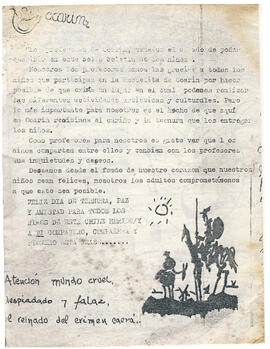 coarin
Los profesores de Coarin, tenemos el agrado de poder
saludarlos en este boletín de los niños.
Nosotros los profesores damos las gracias a todos los
niños que participan en la Escuelita de Coarin por hacer
posible de que exista un lugar en el cual podemos realizar
las diferentes actividades artísticas y culturales. Pero
lo más importante para nosotros es el hecho de que aquí
en Coarin recibimos el cariño y la ternura que los entregan
los niños.
Como profesores para nosotros es grato ver que los
niños comparten entre ellos y también con los profesores
sus inquietudes y deseos.
Deseamos desde el fondo de nuestro corazón que nuestros
niños sean felices, nosotros los adultos comprometámonos
a que esto sea posible.
FELIZ DIA DE TERNURA, PAZ
Y AMISTAD PARA TODOS LOS
NIÑOS DE ESTE CHILE HERIDO/Y
A EL COMPAÑERO,
Atención mundo cruel,
despiadado y falaz,
el reinado del crimen caerá..